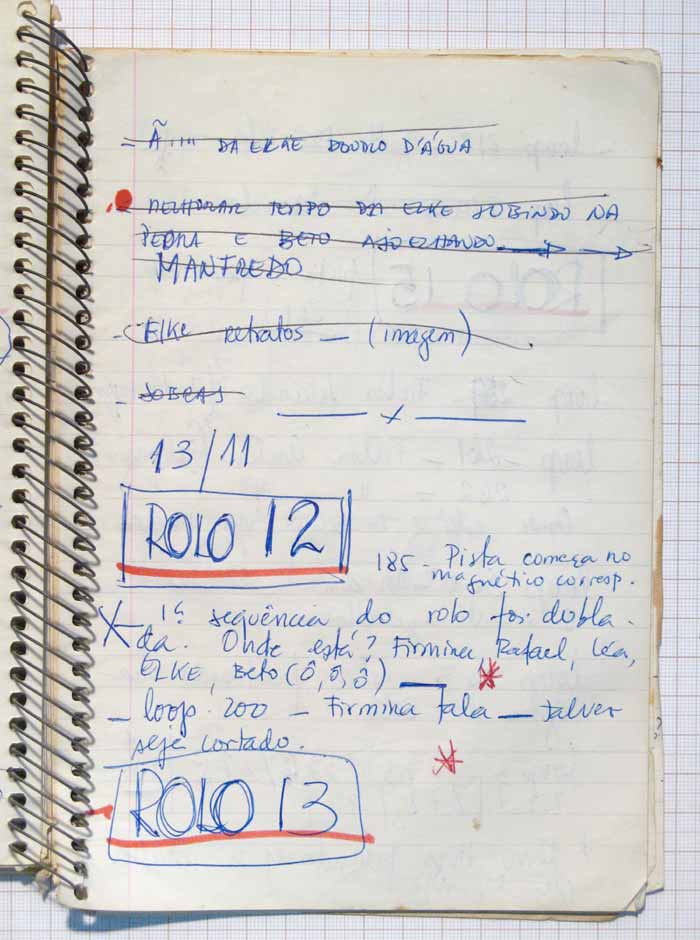 - Ã.... DA ELKE DOUDLO D'ÁGUA
- MELHORAR TEMPO DA ELKE SUBINDO NA
PEDRA E BETO AJOELHANDO
MANFREDO
- Elke retratos — (imagem)
- SOBRAS
x
13/11
ROLO 12
185 - Pista começa no
magnético corresp.
X - 1ª sequência do rolo foi dubla-
da. Onde está? Firmina, Rafael, Lea,
ELKE, Beto (ô, ô, ô) —
- loop 200 - Firmina fala — talvez
seje cortado.
ROLO 13